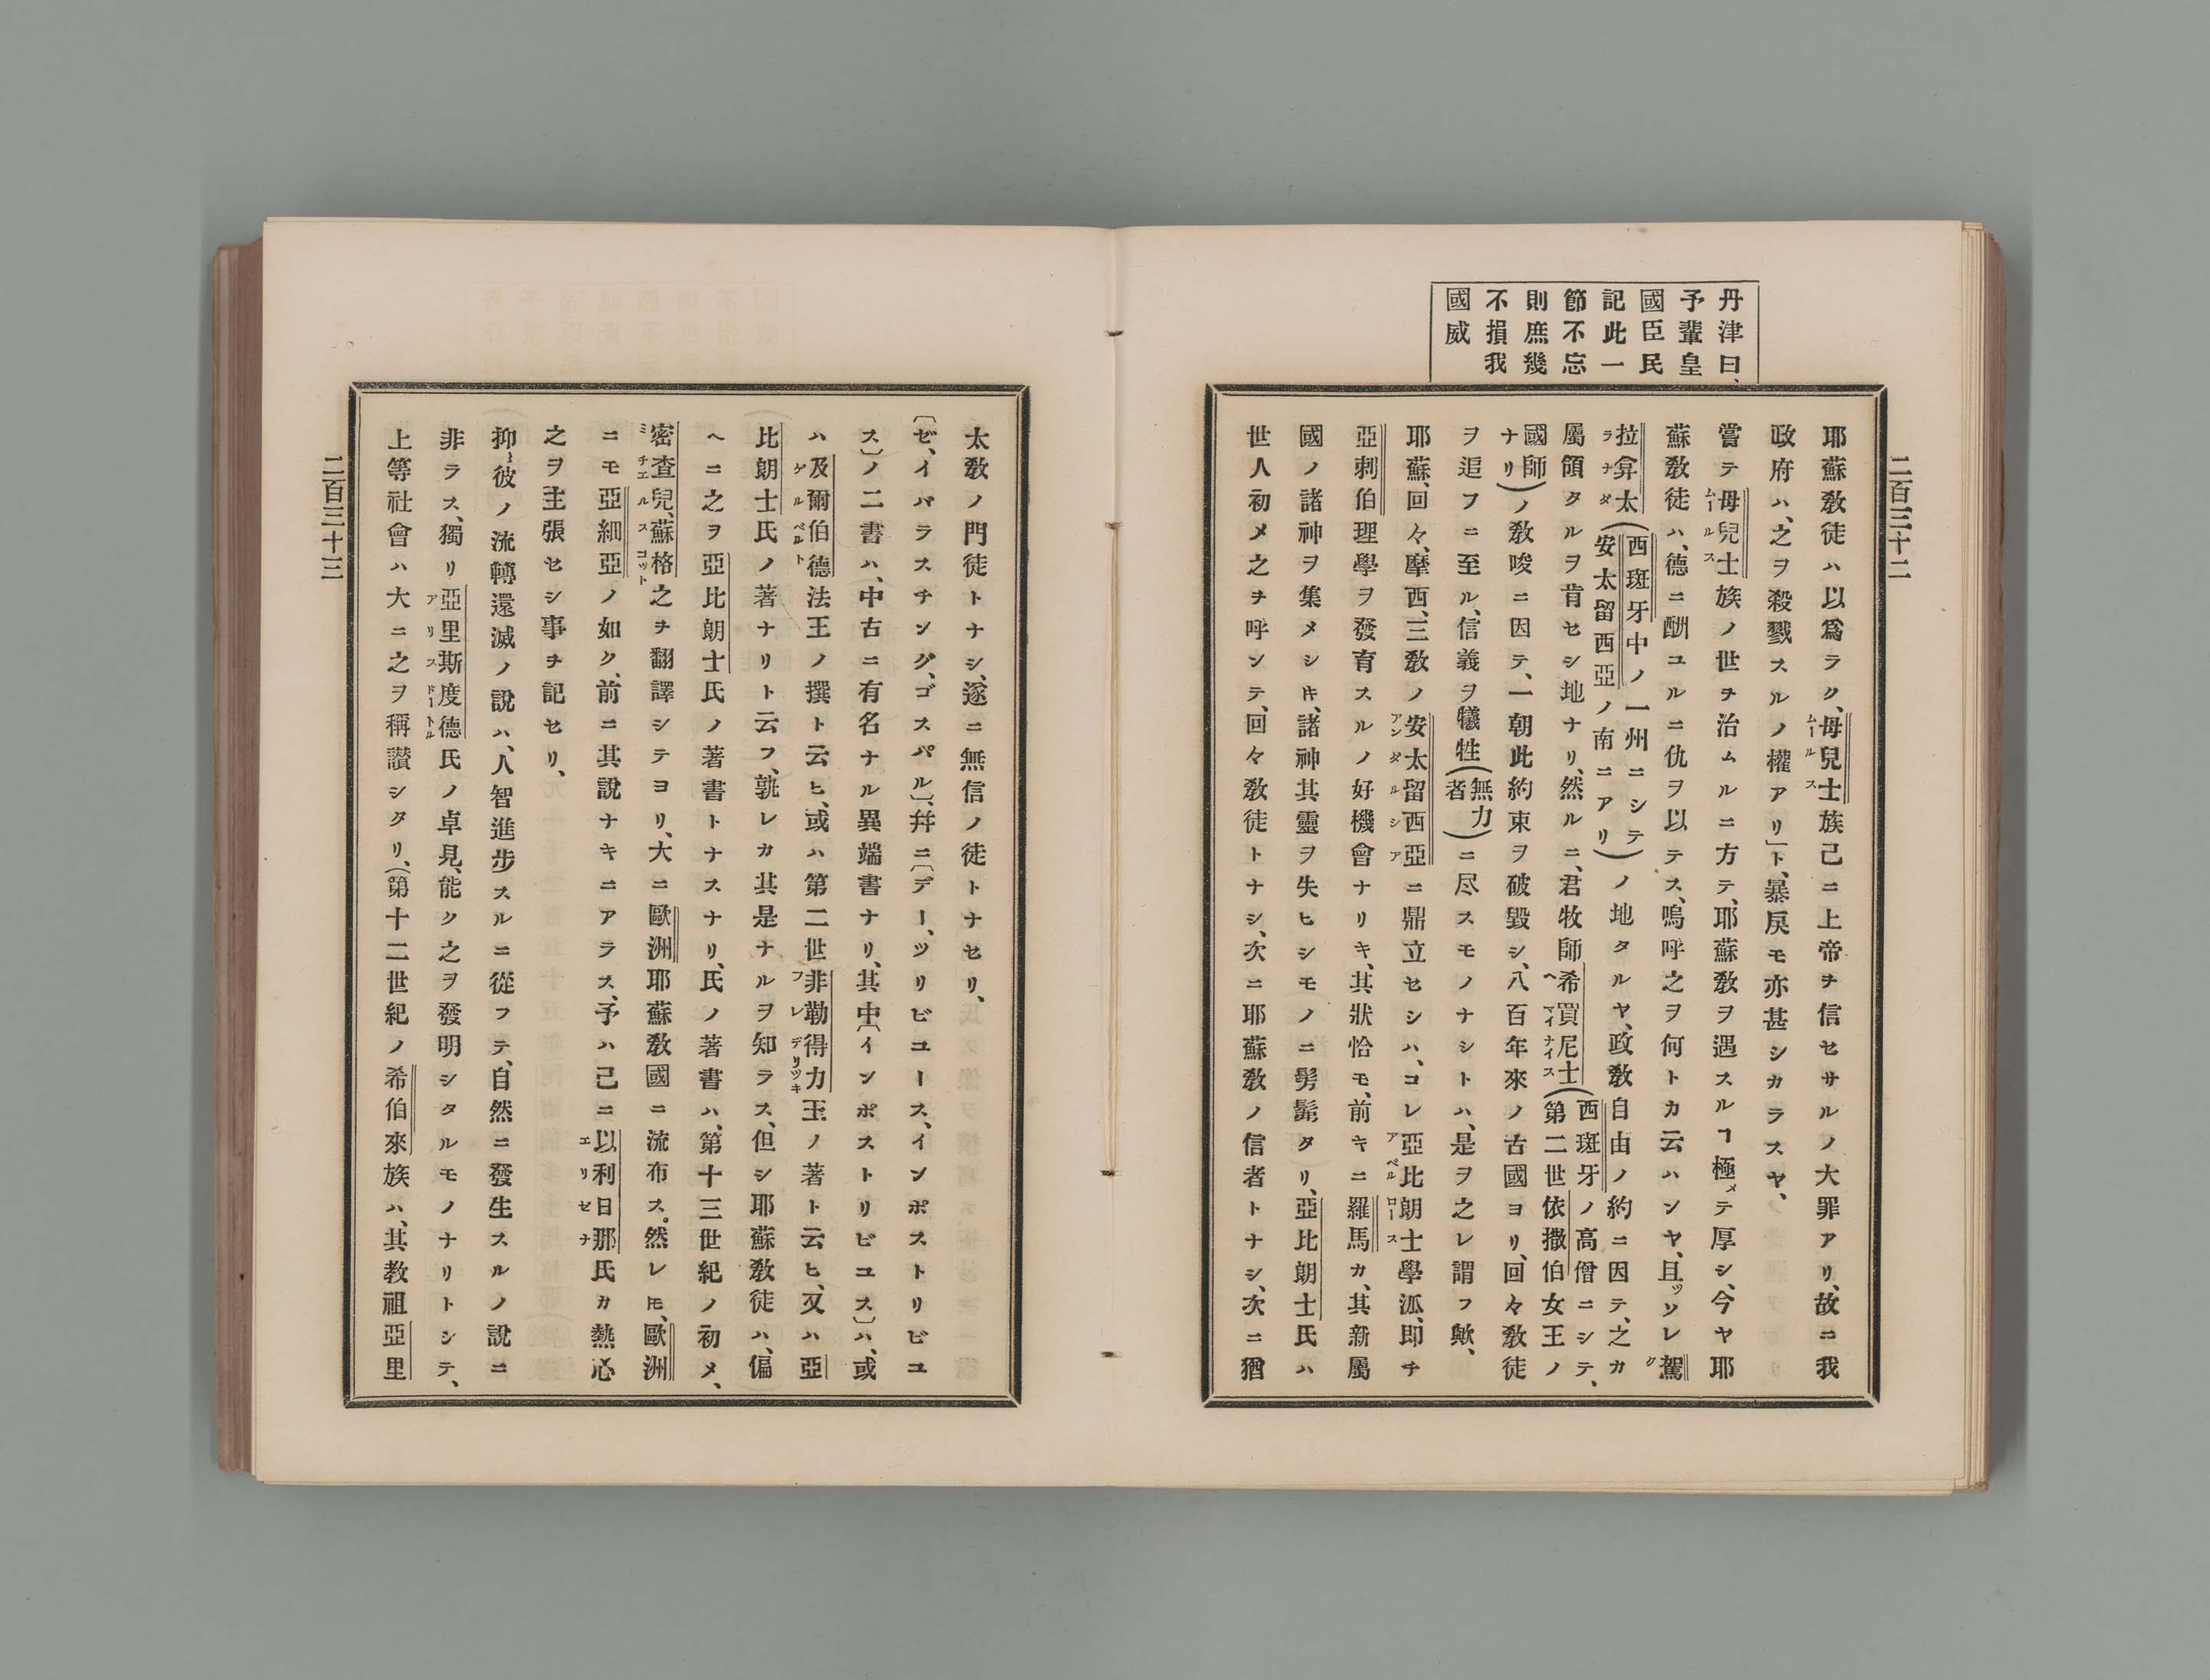 二百三十二
丹津曰、
予輩皇
國臣民
記此一
節不忘
則庶幾
不損我
國威
耶蘇敎徒ハ以爲ラク、母兒士族己ニ上帝ヲ信セサルノ大罪アリ、故ニ我
政府ハ、之ヲ殺戮スルノ權アリ」ト、暴戾モ亦甚シカラスヤ、
嘗テ母兒士族ノ世ヲ治ムルニ方テ、耶蘇敎ヲ遇スルヿ極メテ厚シ、今ヤ耶
蘇敎徒ハ、德ニ酬ユルニ仇ヲ以テス、嗚呼之ヲ何トカ云ハンヤ、且ツソレ駕
拉弇太(西斑牙中ノ一州ニシテ安太留西亞ノ南ニアリ)ノ地タルヤ、政敎自由ノ約ニ因テ、之カ
屬領タルヲ肯セシ地ナリ、然ルニ、君牧師希買尼士(西斑牙ノ高僧ニシテ、第二世依撒伯女王ノ
國師ナリ)ノ敎唆ニ因テ、一朝此約束ヲ破毀シ、八百年來ノ古國ヨリ、回々敎徒
ヲ逐フニ至ル、信義ヲ犧牲(無力者)ニ尽スモノナシトハ、是ヲ之レ謂フ歟、
耶蘇、回々、摩西、三敎ノ安太留西亞ニ鼎立セシハ、コレ亞比朗士學派、即チ
亞刺伯理學ヲ發育スルノ好機會ナリキ、其狀恰モ、前キニ羅馬カ、其新屬
國ノ諸神ヲ集メシキ、諸神其靈ヲ失ヒシモノニ髣髴タリ、亞比朗士氏ハ
世人初メ之ヲ呼ンテ、回々敎徒トナシ、次ニ耶蘇敎ノ信者トナシ、次ニ猶
太敎ノ門徒トナシ、遂ニ無信ノ徒トナセリ、
〔ゼ、イバラスチング、ゴスパル〕、幷ニ〔デー、ツリビユース、インポストリビユ
ス〕ノ二書ハ、中古ニ有名ナル異端書ナリ、其中〔インポストリビユス〕ハ、或
ハ及爾伯德法王ノ撰ト云ヒ、或ハ第二世非勒得力王ノ著ト云ヒ、又ハ亞
比朗士氏ノ著ナリト云フ、孰レカ其是ナルヲ知ラス、但シ耶蘇敎徒ハ、偏
ヘニ之ヲ亞比朗士氏ノ著書トナスナリ、氏ノ著書ハ、第十三世紀ノ初メ、
密查兒、蘇格之ヲ翻譯シテヨリ、大ニ歐洲耶蘇敎國ニ流布ス。然レ𪜈、歐洲
ニモ亞細亞ノ如ク、前ニ其說ナキニアラス、予ハ己ニ以利日那氏カ熱心
之ヲ主張セシ事ヲ記セリ、
抑彼ノ流轉還滅ノ說ハ、人智進步スルニ從フテ、自然ニ發生スルノ說ニ
非ラス、獨リ亞里斯度德氏ノ卓見、能ク之ヲ發明シタルモノナリトシテ、
上等社會ハ大ニ之ヲ稱讃シタリ、(第十二世紀ノ希伯來族ハ、其教祖亞里
二百三十三